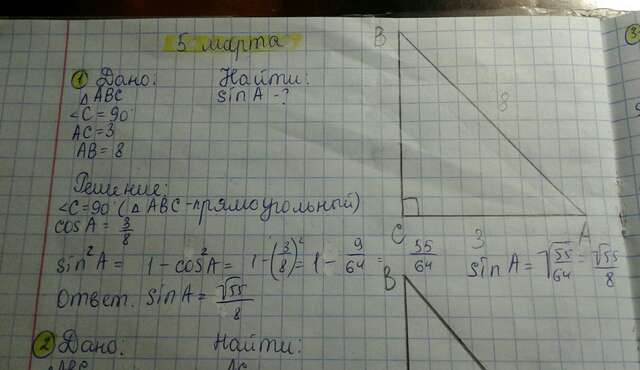 5 марта
① Дано: Найти:
△ABC sinA - ?
∠C = 90°
AC = 3
AB = 8
B
8
C
3
A
Решение:
∠C = 90° (△ABC - прямоугольный)
cosA = 3/8
sin²A = 1 - cos²A = 1 - (3/8)² = 1 - 9/64 = 55/64 sinA = √55/64 = √55/8
Ответ. sinA = √55/8
B
② Дано: Найти:
△ABC AC